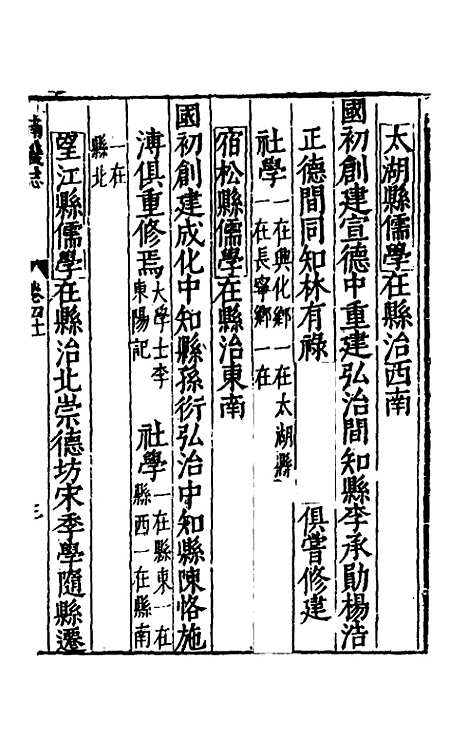 太湖縣儒學在縣治西南
國初創建宣德中重建弘治間知縣李承勛楊浩
正德間同知林有祿 俱嘗修建
社學一在興化鄉一在太湖縣
一在長寧鄉一在
宿松縣儒學在縣治東南
國初創建成化中知縣孫衍弘治中知縣陳恪施
溥俱重修焉大學士李
東陽記 社學一在縣東一在
縣西一在縣南
一在
縣北
望江縣儒學在縣治北崇德坊宋季學隨縣遷
志
三